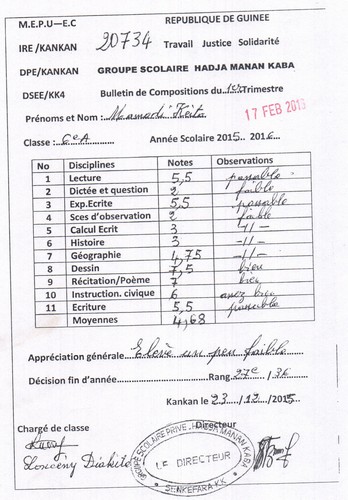 M.E.P.U—E.C REPUBLIQUE DE GUINEE
IRE /KANKAN 20734 Travail Justice Solidarité
DPE/KANKAN GROUPE SCOLAIRE HADJA MANAN KABA
DSEE/KK4 Bulletin de Compositions du 1er Trimestre
17 FEB 2016
Prénoms et Nom : Mamadi Keita
Classe : 6eA Année Scolaire 2015.. 2016...
No Disciplines Notes Observations
1 Lecture 5,5 passable
2 Dictée et question 2 faible
3 Exp.Ecrite 5,5 passable
4 Sces d'observation 2 faible
5 Calcul Ecrit 3 -11-
6 Histoire 3 -11-
7 Géographie 4,75 -11-
8 Dessin 7,5 bien
9 Récitation/Poème 7 bien
10 Instruction. civique 6 assez bien
11 Ecriture 5,5 passable
Moyennes 4,68
Appréciation générale Elève un peu faible
Décision fin d'année Rang 27e /36
Kankan le 23/12/2015
Chargé de classe Directeur
GROUPE SCOLAIRE PRIVE HADJA MANAN KABA
LE DIRECTEUR
SENKEFARA.KK
Diakité